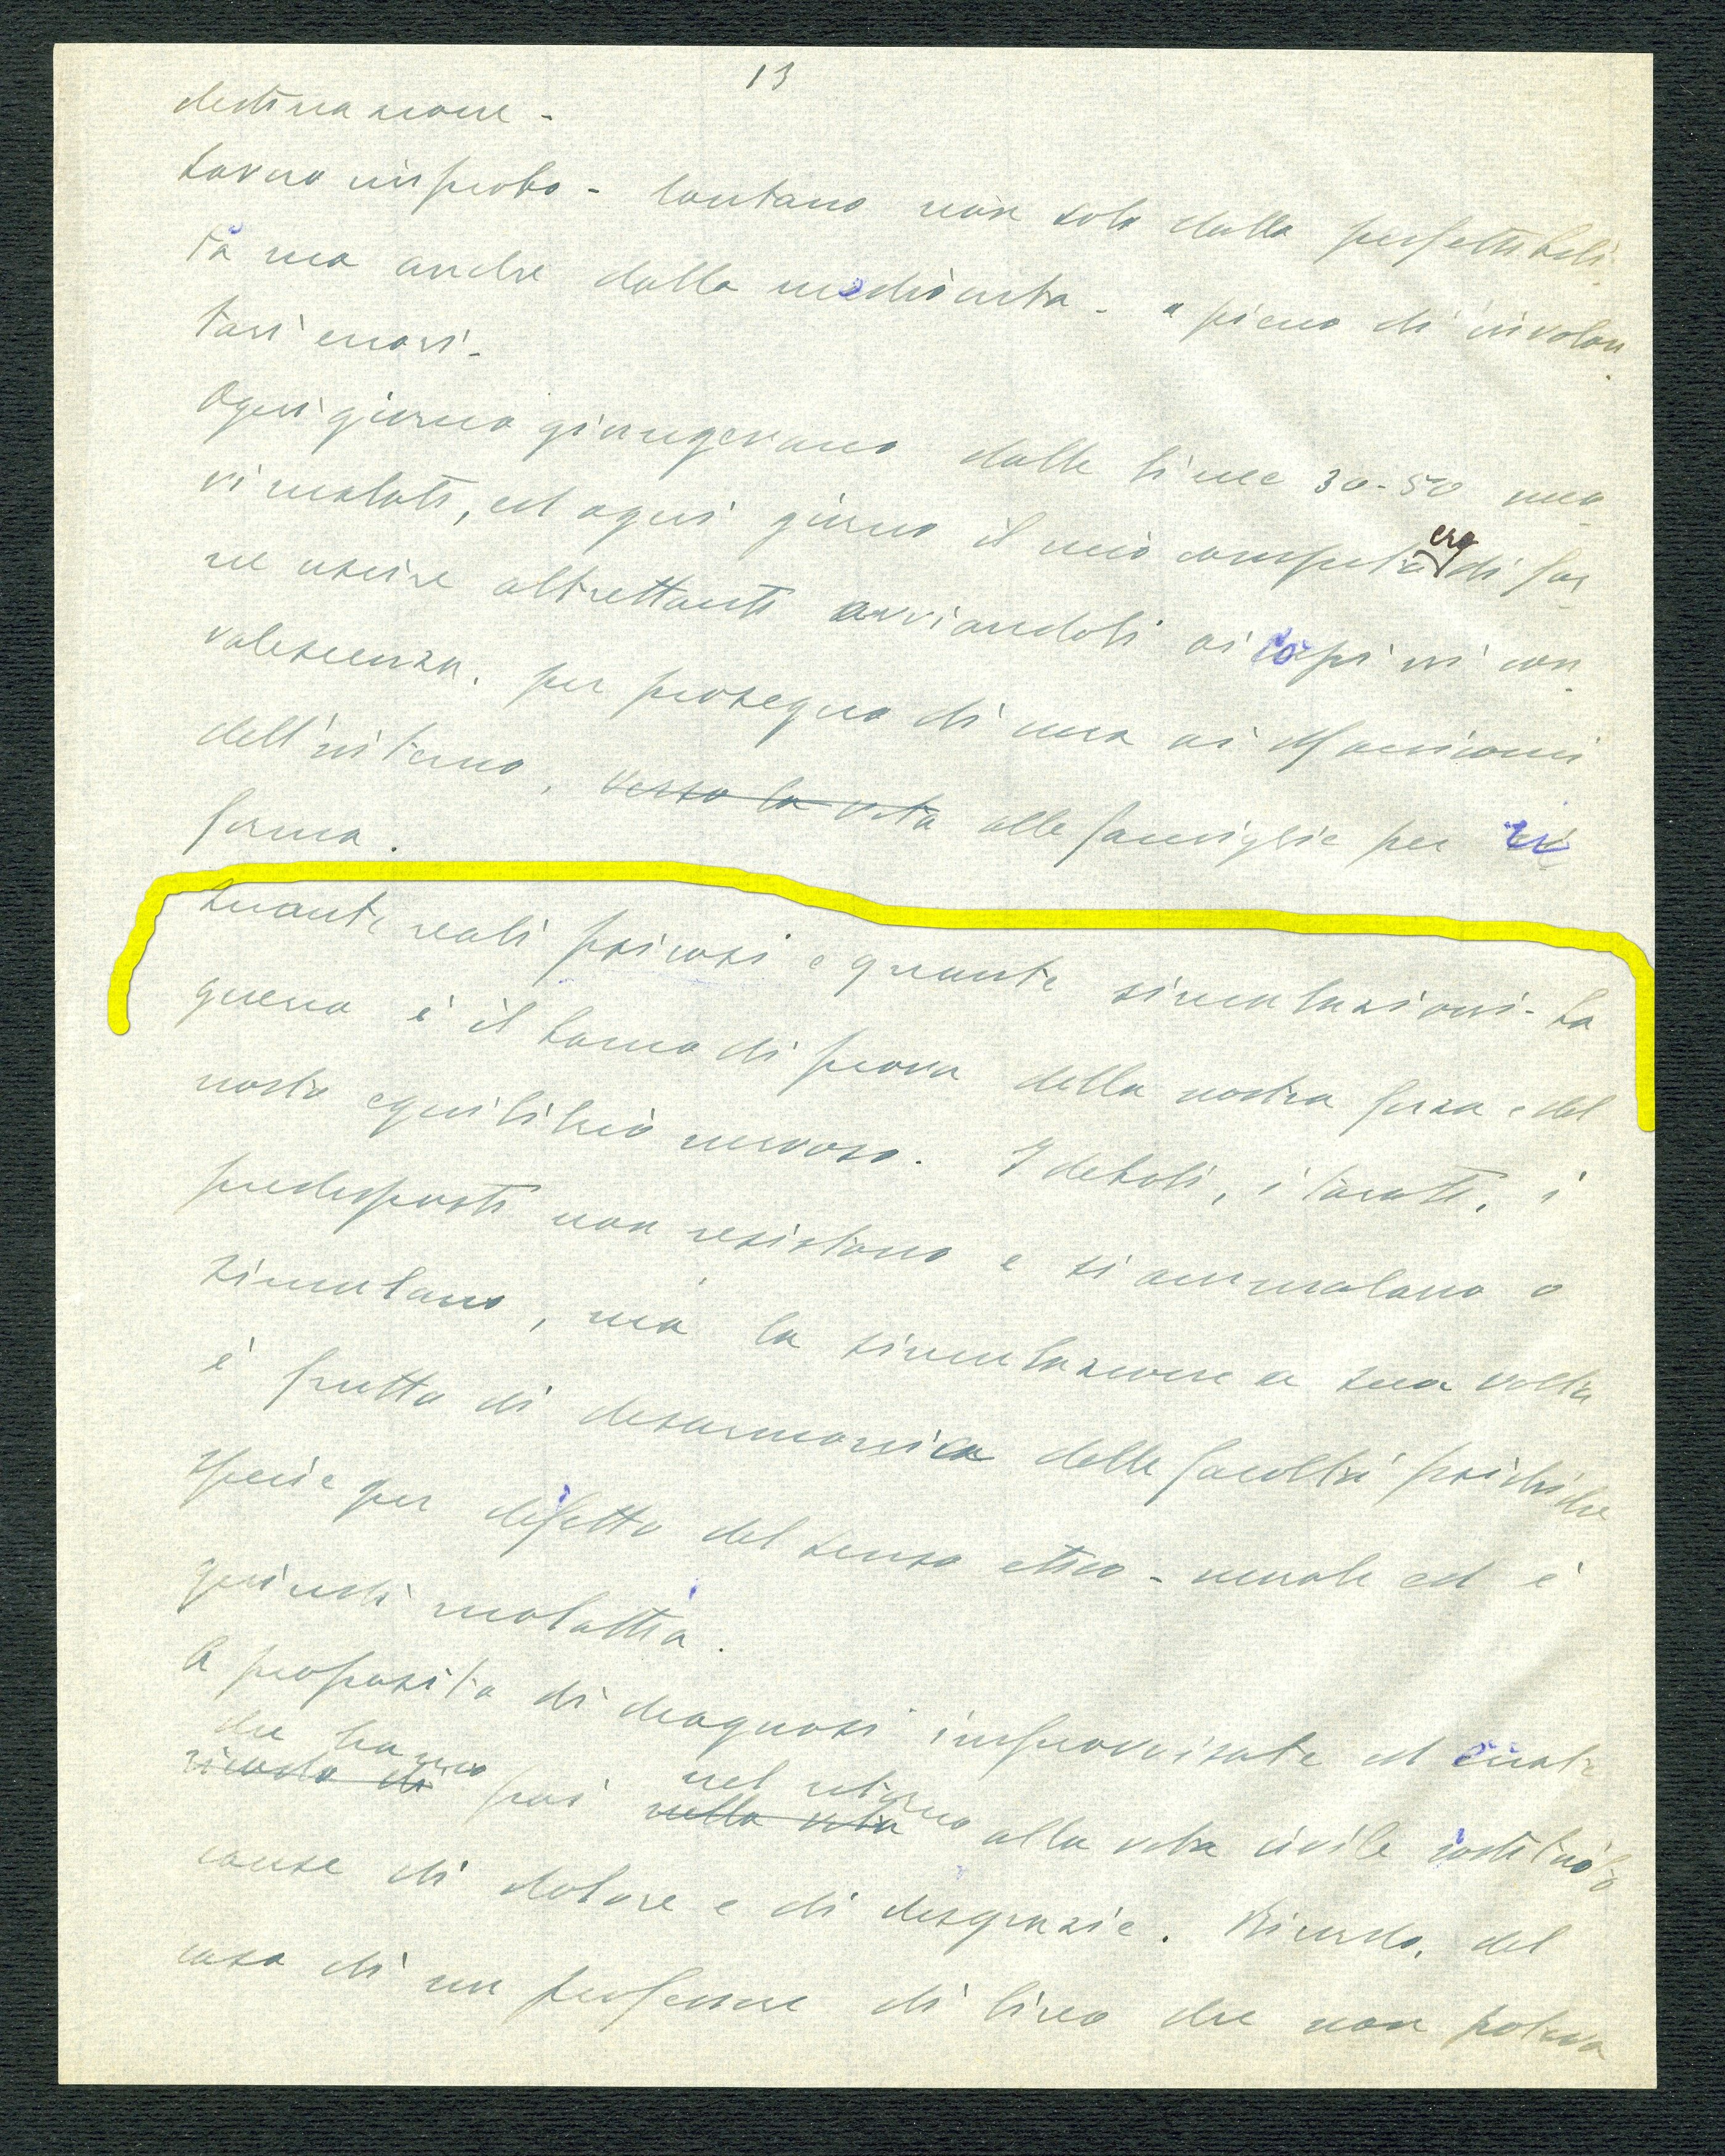 13
destinazione -
Lavoro improbo - lontano non solo dalla perfettibili
tà ma anche dalla mediocrità - e pieno di involon
tari errori -
Ogni giorno giungevano dalle linee 30-50 nuo
vi malati, ed ogni giorno il mio compito era di far
ne uscire altrettanti avviandoli ai Corpi in con
valescenza, per prosieguo di cura ai Manicomi
dell'interno, verso la vita alle famiglie per ri
forma.
Quante reali psicosi e quante simulazioni - La
guerra è il banco di prova della nostra forza e del
nostro equilibrio nervoso. I deboli, i tarati, i
predisposti non resistono e si ammalano o
simulano, ma la simulazione a sua volta
è frutto di disarmonica delle facoltà psichiche
specie per difetto del senso etico - morale ed è
quindi malattia.
A proposito di diagnosi improvvisate ed errate
che hanno nel ritorno
ricordo di poi nella vita alla vita civile costituito
cause di dolore e di disgrazie. Ricordo, del
caso di un professore di liceo che non poteva